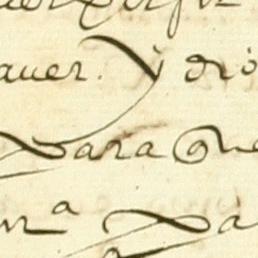 auer. Y dio
para que
n.ra pa